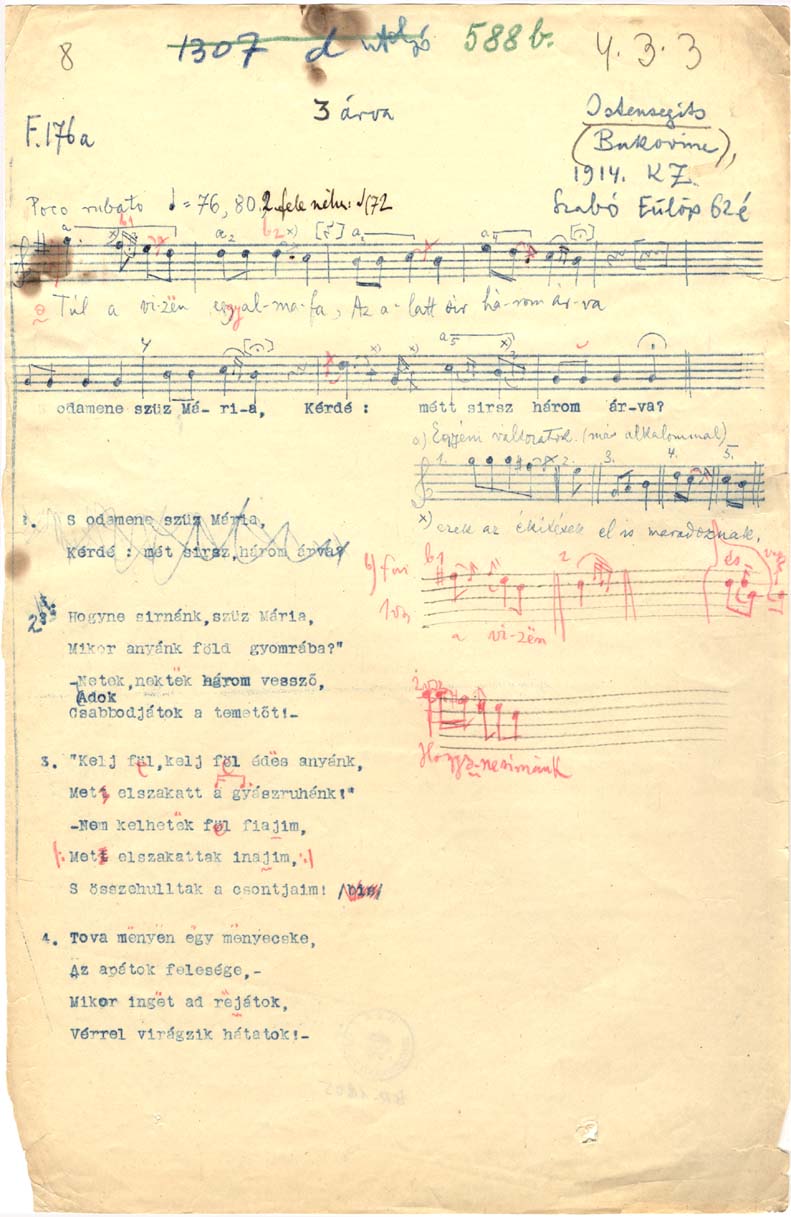 8 1307 d utolsó 588 b. 4.3.3
3 árva
Istensegíts
F.176a
(Bukovina),
1914. KZ.
Poco rubato ♩ = 76, 80. 2. fele néha: 72
Szabó Fülöp 62 é
Túl a vi-zën egy al-ma-fa, Az a-latt óir há-rom ár-va
odamene szüz Má- ri-a, Kérdé : métt sirsz három ár-va?
a) Egyéni változatok. (más alkalommal)
1. 2. 3. 4. 5.
x) ezek az ékítések el is maradoznak.
S odamene szüz Mária,
Kérdé : mét sirsz,három árva?
b1 2 és
a vi-zën
2. Hogyne sirnánk,szüz Mária,
Mikor anyánk föld gyomrába?"
-Netek,nektëk három vessző,
Adok
Csabbodjátok a temetőt!-
3. "Kelj föl,kelj föl édës anyánk,
Mett elszakatt a gyászruhánk!"
-Nem kelhetëk föl fiajim,
|: Mett elszakattak inajim, :|
S összehulltak a csontjaim! /bis/
4. Tova mënyën ëgy mënyecske,
Az apátok felesége,-
Mikor ingët ad rëjátok,
Vérrel virágzik hátatok!-